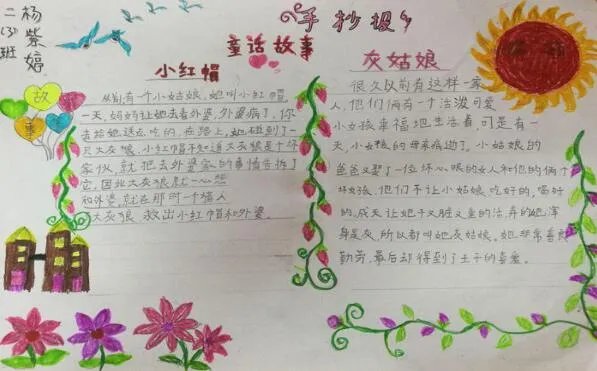 二(3)班
杨紫婷
手抄报
童话故事
故事
小红帽
从前有一个小姑娘,她叫小红帽
一天,妈妈让她去看外婆,外婆病了,你
去给她送点吃的,在路上,她碰到了一
只大灰狼,小红帽不知道大灰狼是个坏
家伙,就把去外婆家的事情告诉了
它,大灰狼就一心想
和外婆,就在那时一个猎人
大灰狼 救出小红帽和外婆。
灰姑娘
很久以前有这样一家
人,他们俩有一个活泼可爱
小女孩幸福地生活着,可是有一
天,小女孩的母亲病逝了。小姑娘的
爸爸又娶了一位坏心眼的女人和他的俩个
坏女孩,他们不让小姑娘吃好的,喝好
的,成天让她干又脏又重的活,弄的她浑
身是灰,所以都叫她灰姑娘。她非常善良
勤劳,最后却得到了王子的喜爱。